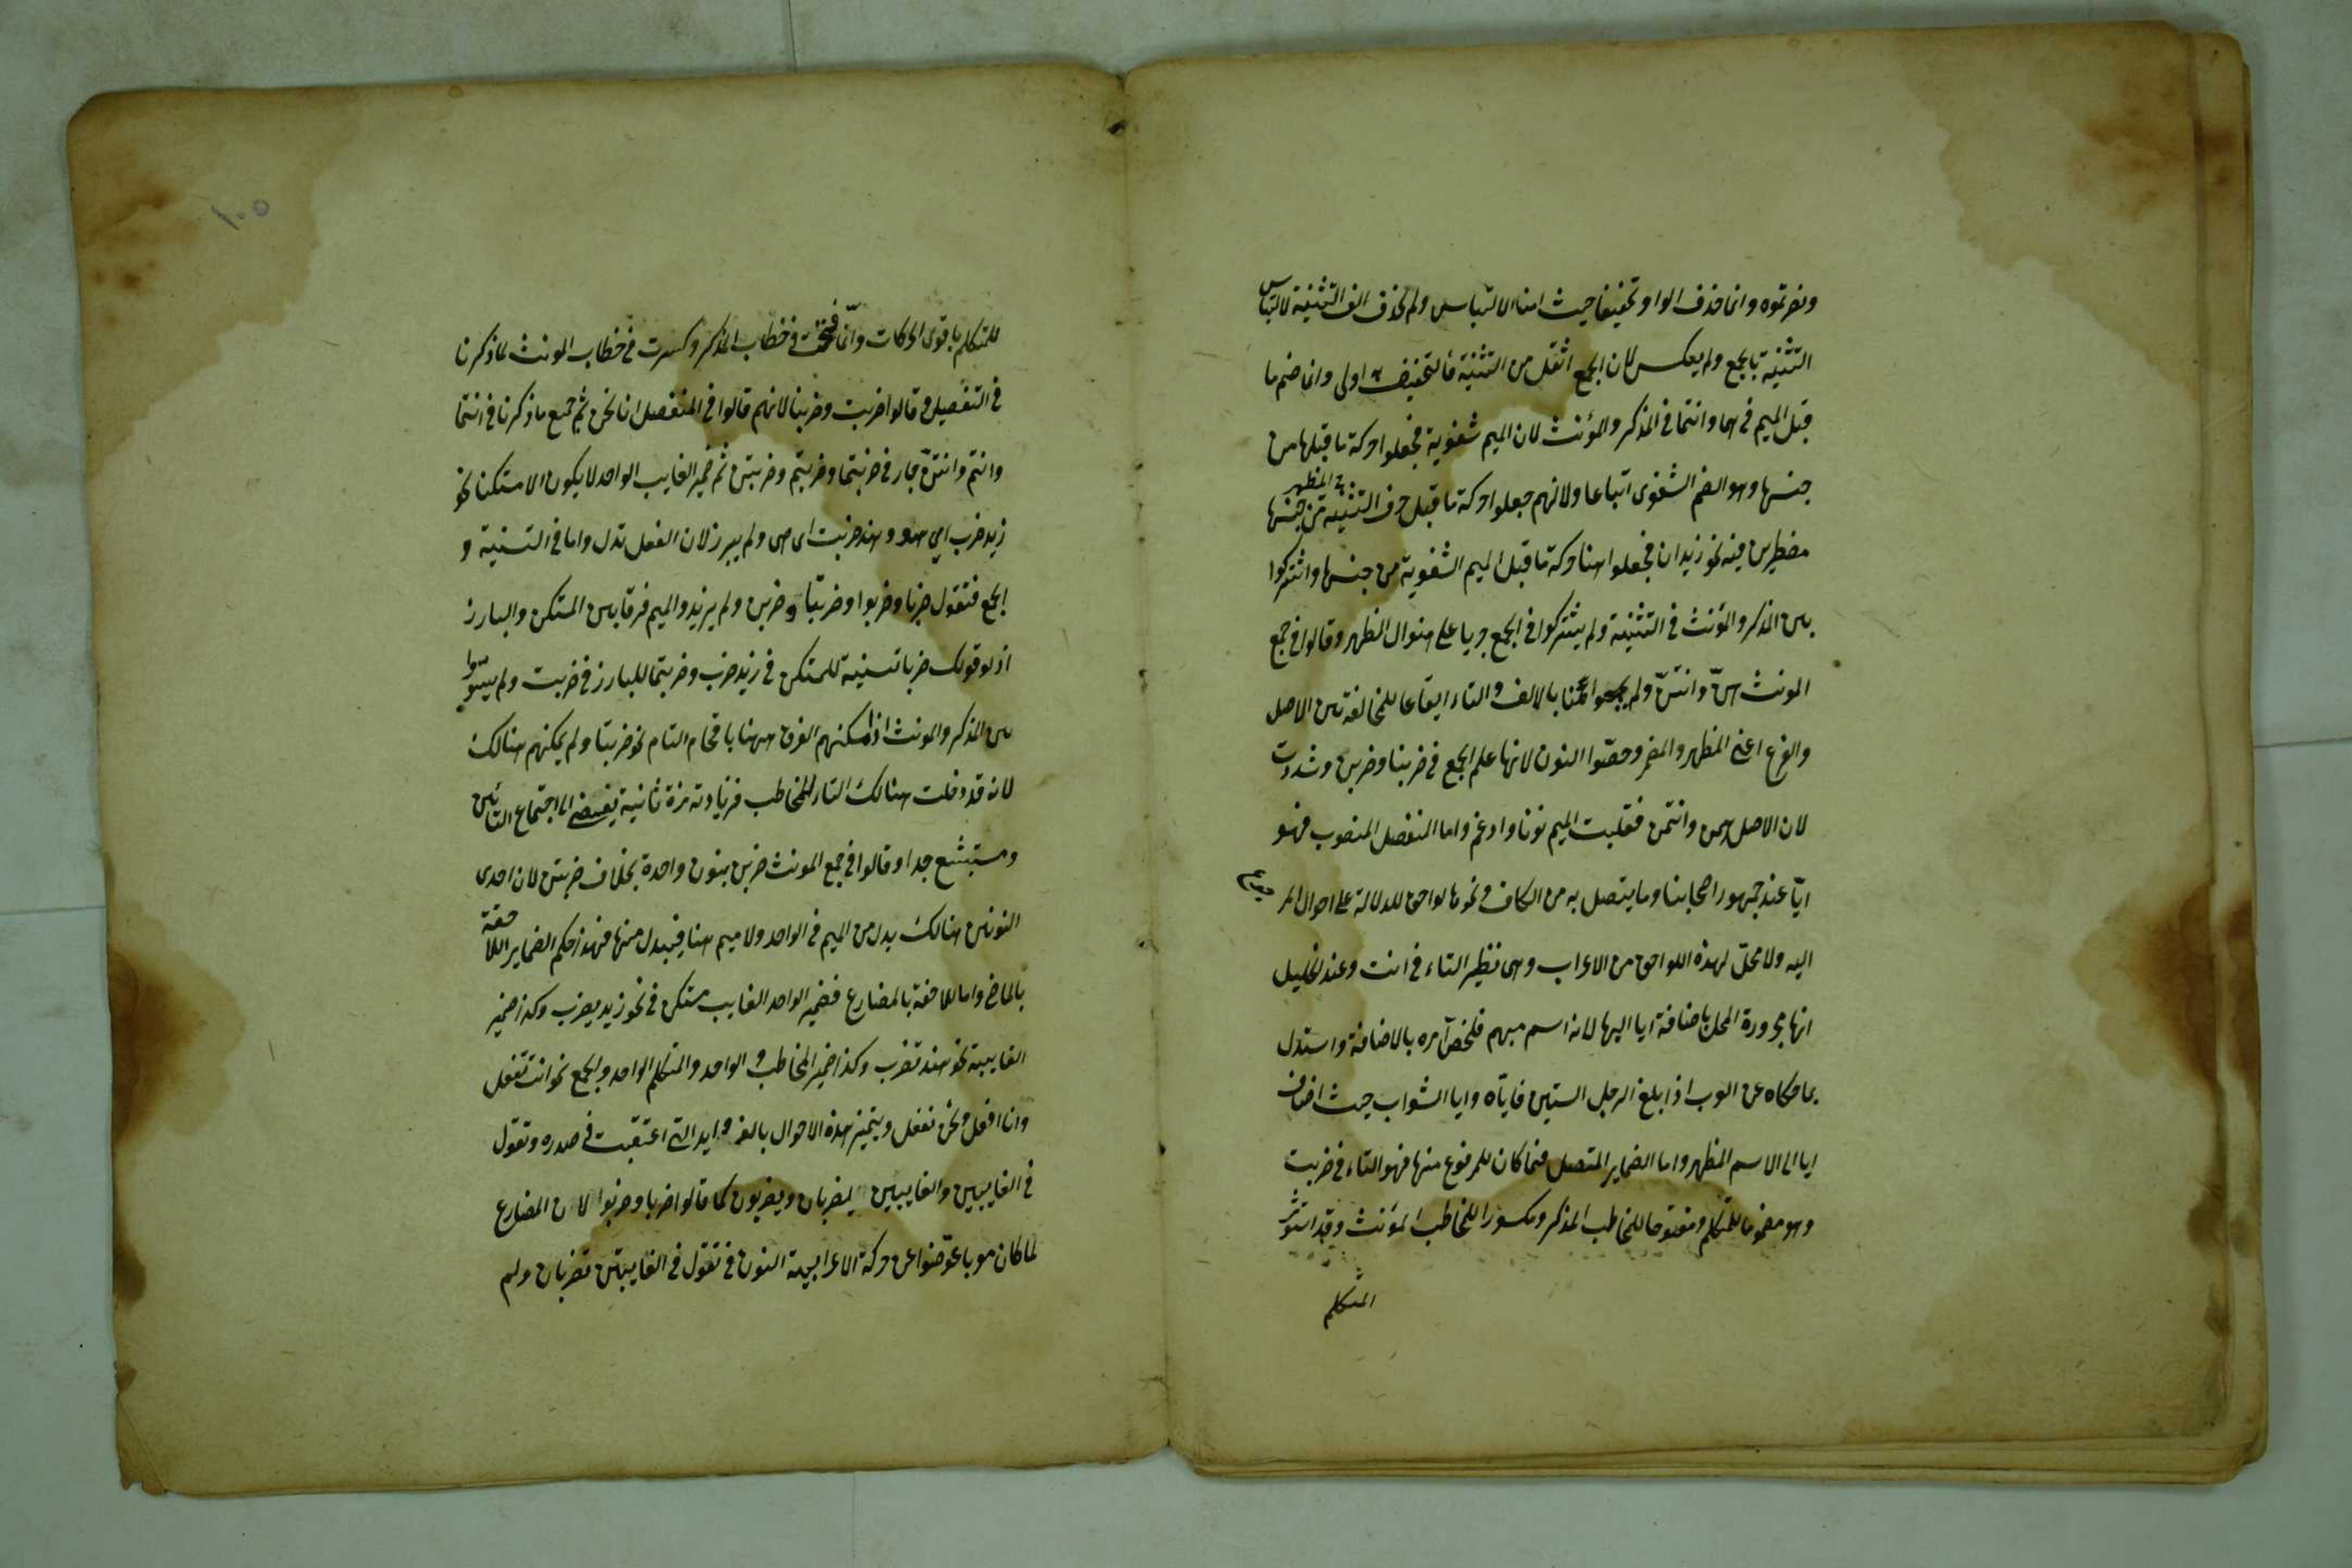 وضربتموه وانما حذف الواو تخفيفا حيث امنا الالتباس ولم يحذف الف التثنية لالتباس
التثنية بالجمع ولم يعكس لان الجمع اثقل من التثنية فالتخفيف به اولى وانما ضم ما
قبل الميم في هما وانتما في المذكر والمؤنث لان الميم شفوية فجعلوا حركة ما قبلها من
جنسها وهو الضم الشفوى اتباعا ولانهم جعلوا حركة ما قبل حرف التثنية في المظهر من جنسها
مضطرين فيه نحو زيدان فجعلوا هنا حركة ما قبل الميم الشفوية من جنسها واشتركوا
بين المذكر والمؤنث في التثنية ولم يشتركوا في الجمع جريا على منوال المظهر وقالوا في جمع
المونث هنّ وانتنّ ولم يجمعوا هنا بالالف والتاء ايقاعا للمخالفة بين الاصل
والفرع اعني المظهر والمضمر وخصّوا النون لانها علم الجمع في ضربنا وضربن وشددت
لان الاصل همن وانتمن فقلبت الميم نونا وادغم واما المنفصل المنصوب فهو
ايّا عند جمهور اصحابنا وما يتصل به من الكاف ونحوها لواحق للدلالة على احوال المرجوع
اليه ولا محلّ لهذه اللواحق من الاعراب وهى نظير التاء في انت وعند الخليل
انها مجرورة المحل باضافة ايا اليها لانه اسم مبهم فلخص امره بالاضافة واستدل
بما حكاه عن العرب اذا بلغ الرجل الستين فاياه وايا الشواب حيث اضاف
ايا الى الاسم المظهر واما الضماير المتصل فما كان للمرفوع منها فهو التاء في ضربت
وهو مضموما للمتكلم ومفتوحا للمخاطب المذكر ومكسورا للمخاطب المؤنث وقد استوثر
المتكلم
١٠٥
للمتكلم باقوى الحركات وانّما فتحت في خطاب المذكر وكسرت في خطاب المونث لما ذكرنا
في التفصيل وقالوا ضربت وضربنا لانهم قالوا في المنفصل انا نحن ثم جميع ما ذكرنا في انتما
وانتم وانتنّ جار في ضربتما وضربتم وضربتن ثم ضمير الغايب الواحد لا يكون الا مستكنا نحو
زيد ضرب اي هو وهند ضربت اى هى ولم يبرز لان الفعل تدل واما في التثنية و
الجمع فتقول ضربا وضربوا وضربتا وضربن ولم يزيدوا الميم فرقا بين المستكن والبارز
اذ لو قولك ضربا تثنية للمستكن في زيد ضرب وضربتما للبارز في ضربت ولم يسوّوا
بين المذكر والمونث اذ امكنهم الفرق ههنا باقحام التاء نحو ضربتا ولم يمكنهم هنالك
لانه قد دخلت هنالك التاء للمخاطب فزيادته مرة ثانية يفضى الى اجتماع التائين
ومستبشع جدا وقالوا في جمع المونث ضربن بنون واحدة بخلاف ضربتن لان احدى
النونين هنالك بدل من الميم في الواحد ولا ميم هنا فيبدل منها فهذا حكم الضماير اللاحقة
بالماضي واما اللاحقة بالمضارع فضمير الواحد الغايب مستكن في نحو زيد يضرب وكذا ضمير
الغايبة نحو هند تضرب وكذا ضمير المخاطب الواحد والمتكلم الواحد والجمع نحو انت تفعل
وانا افعل ونحن نفعل ويتميز هذه الاحوال بالزوايد التي اعتقبت في صدره وتقول
في الغايبين والغايبين يضربان ويضربون كما قالوا ضربا وضربوا لان المضارع
لما كان معربا عوّضوا عن حركة الاعرابية النون وتقول في الغايبتين تضربان ولم